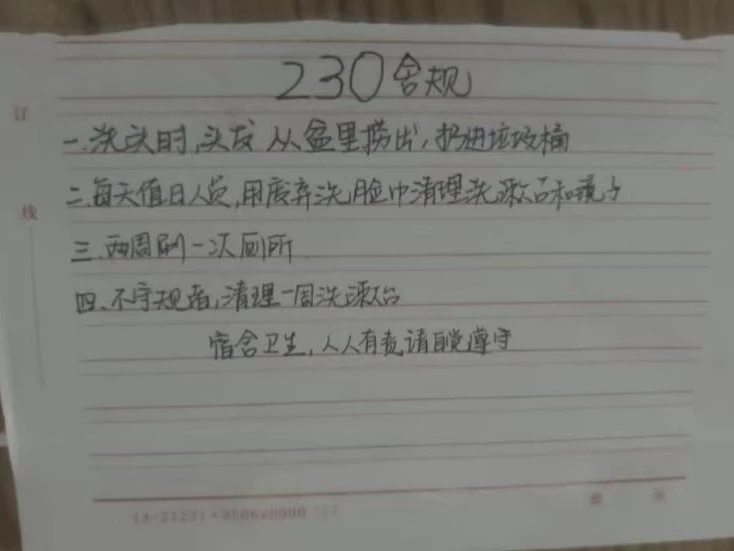 230舍规
订
一.洗头时,头发从盆里捞出,扔进垃圾桶
线
二.每天值日人员,用废弃洗脸巾清理洗漱台和镜子
三.两周刷一次厕所
四.不守规者,清理一周洗漱台
宿舍卫生,人人有责请自觉遵守